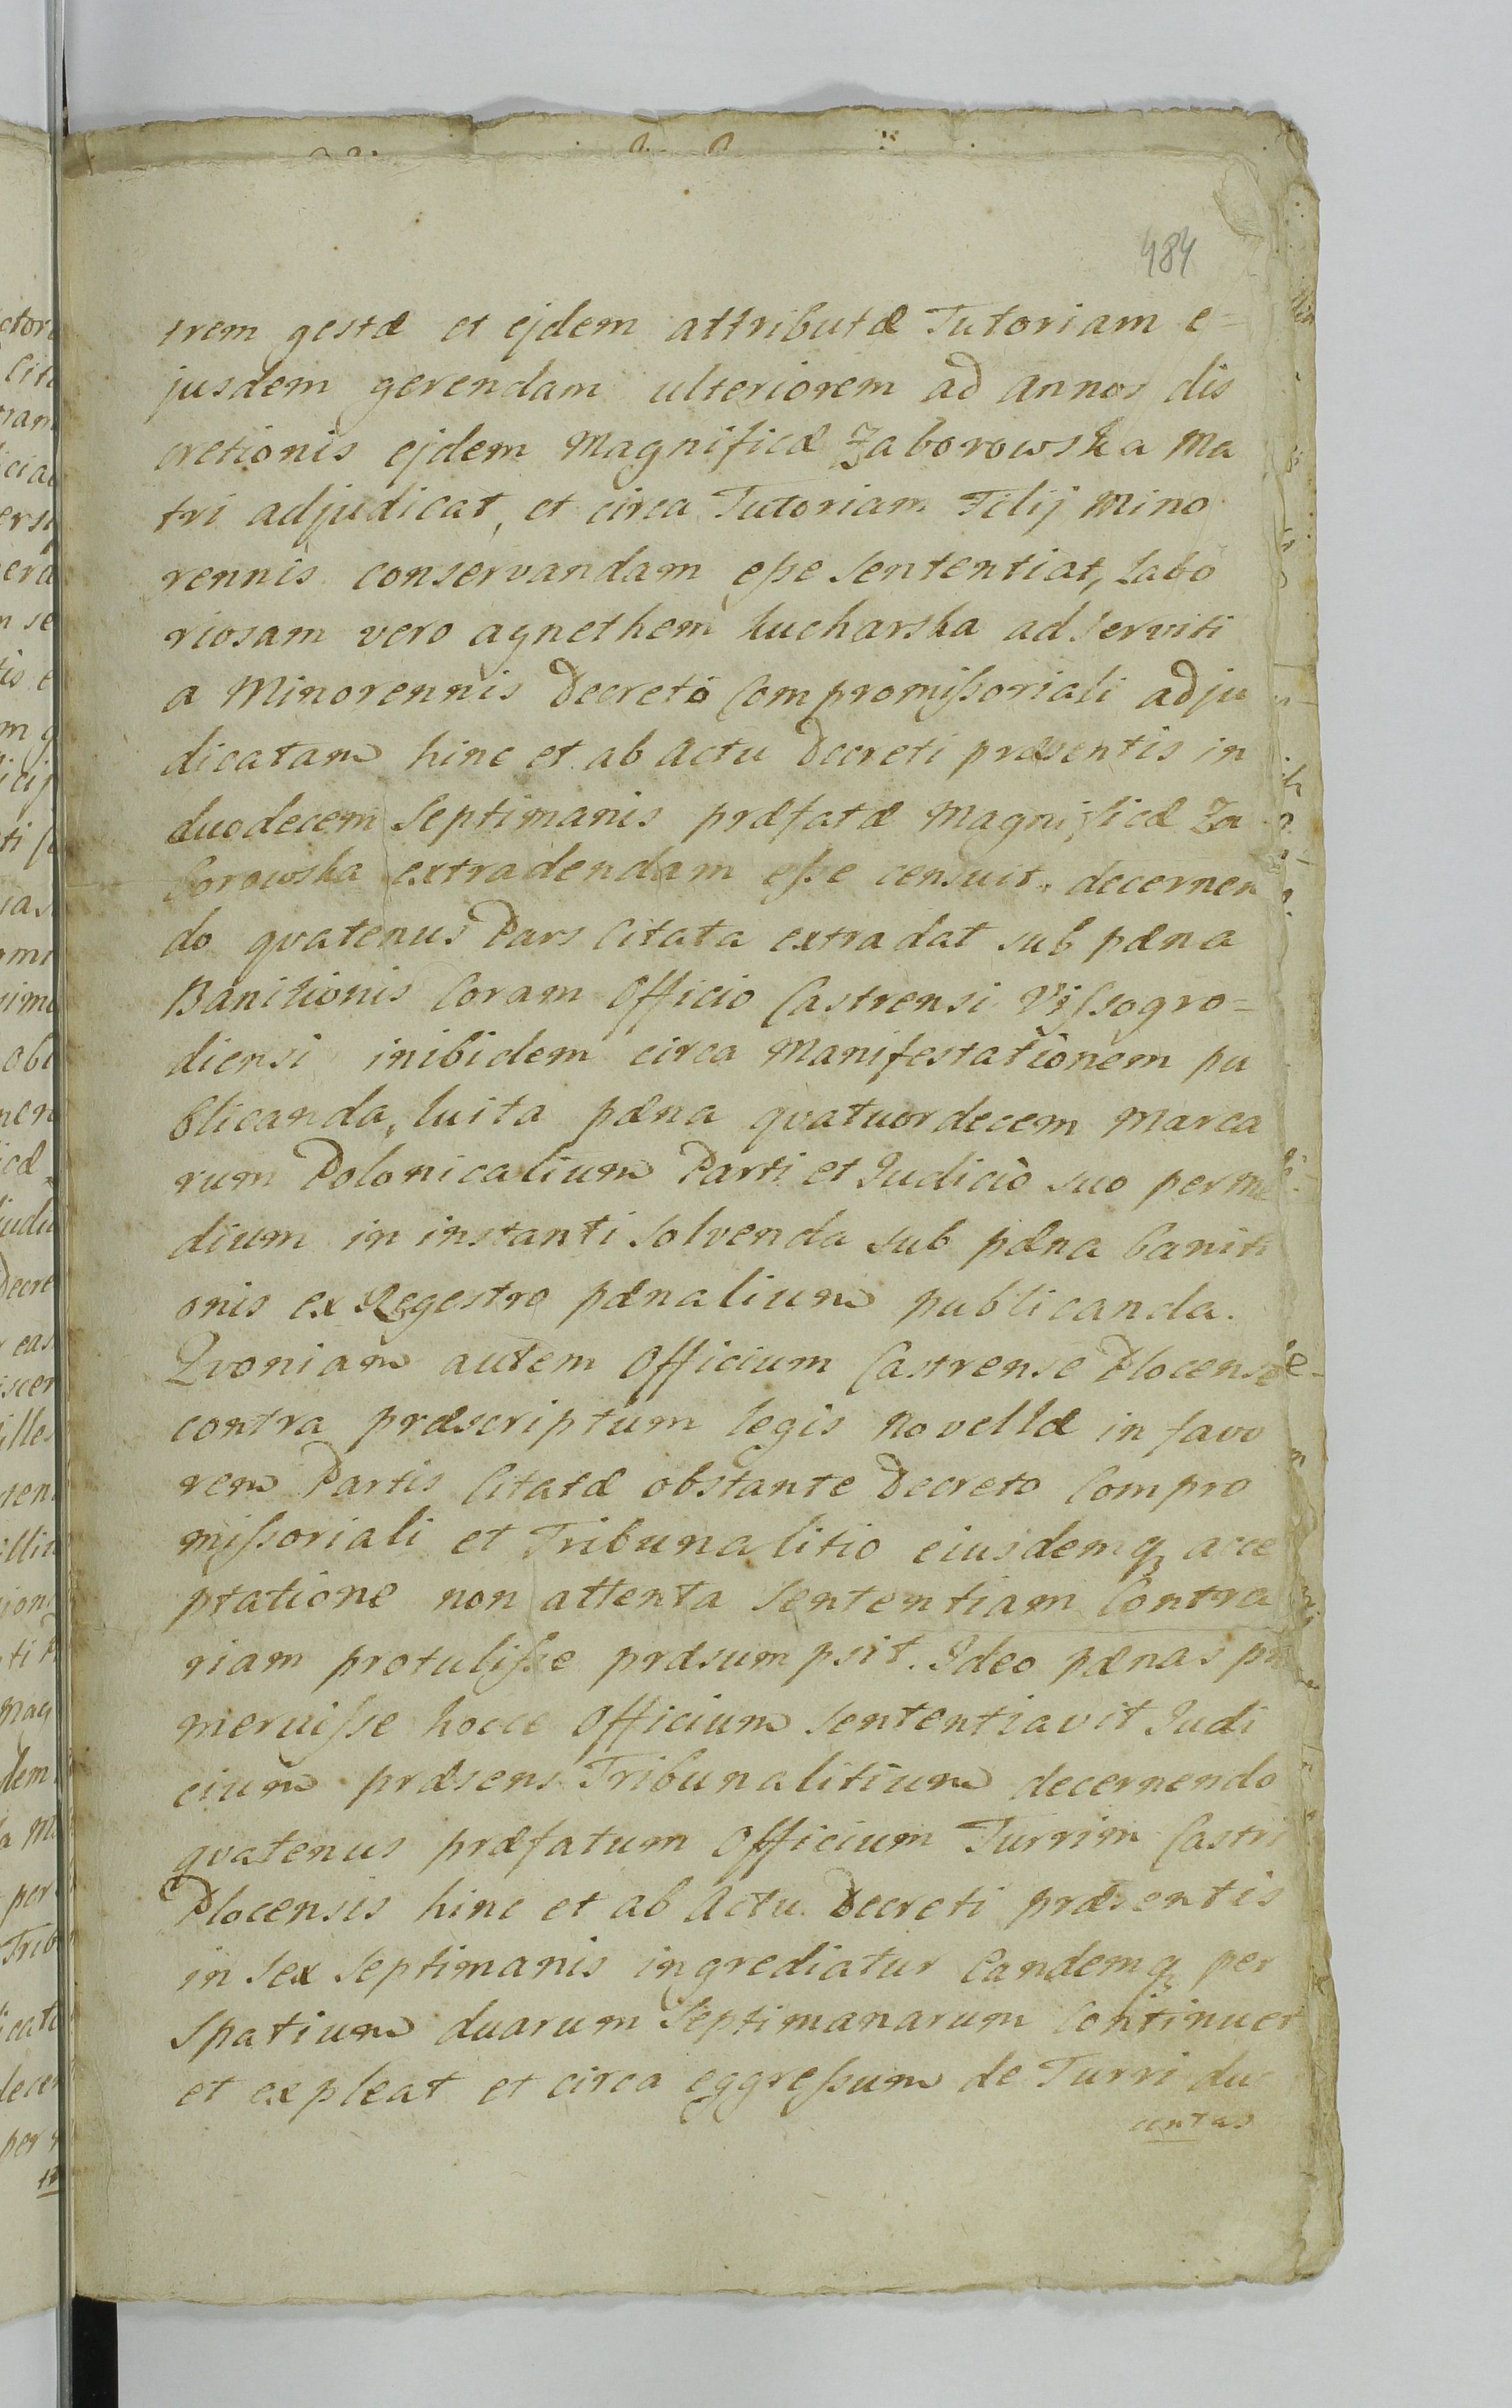 484
trem gestæ et ejdem attributæ Tutoriam e=
jusdem gerendam ulteriorem ad annos dis
cretionis ejdem Magnificæ Zaborowska Ma
tri adjudicat, et circa Tutoriam Filij Mino
rennis conservandam eſse Sententiat, Labo
riosam vero agnethem Kucharska ad Serviti
a Minorennis Decretò Compromiſsoriali adju
dicatam hinc et ab actu Decreti præsentis in
duodecem Septimanis præfatæ Magnificæ Za
borowska extradendam eſse censuit. decernen
do qvatenus Pars Citata extradat sub pæna
Banitionis Coram Officio Castrensi Viſsogro=
diensi inibidem circa Manifestationem pu
blicanda, luita pæna qvatuordecem Marca
rum Polonicalium Parti et Judiciò suo per me
dium in instanti Solvenda sub pæna baniti
onis ex Regestro pænalium publicanda.
Qvoniam autem Officium Castrense Plocense
contra præscriptum legis Novellæ in favo
rem Partis Citatæ obstante Decreto Compro
miſsoriali et Tribunalitio eiusdemq acce
ptatione non attenta Sententiam Contra
riam protuliſse præsumpsit. Ideo pænas pro
meruiſse hocce Officium Sententiavit Judi
cium præsens Tribunalitium decernendo
qvatenus præfatum Officium Turrim Castri
Plocensis hinc et ab Actu Decreti præsentis
in Sex Septimanis ingrediatur Eandemq per
Spatium duarum Septimanarum Continuet
et expleat et circa eggreſsum de Turri du
centas